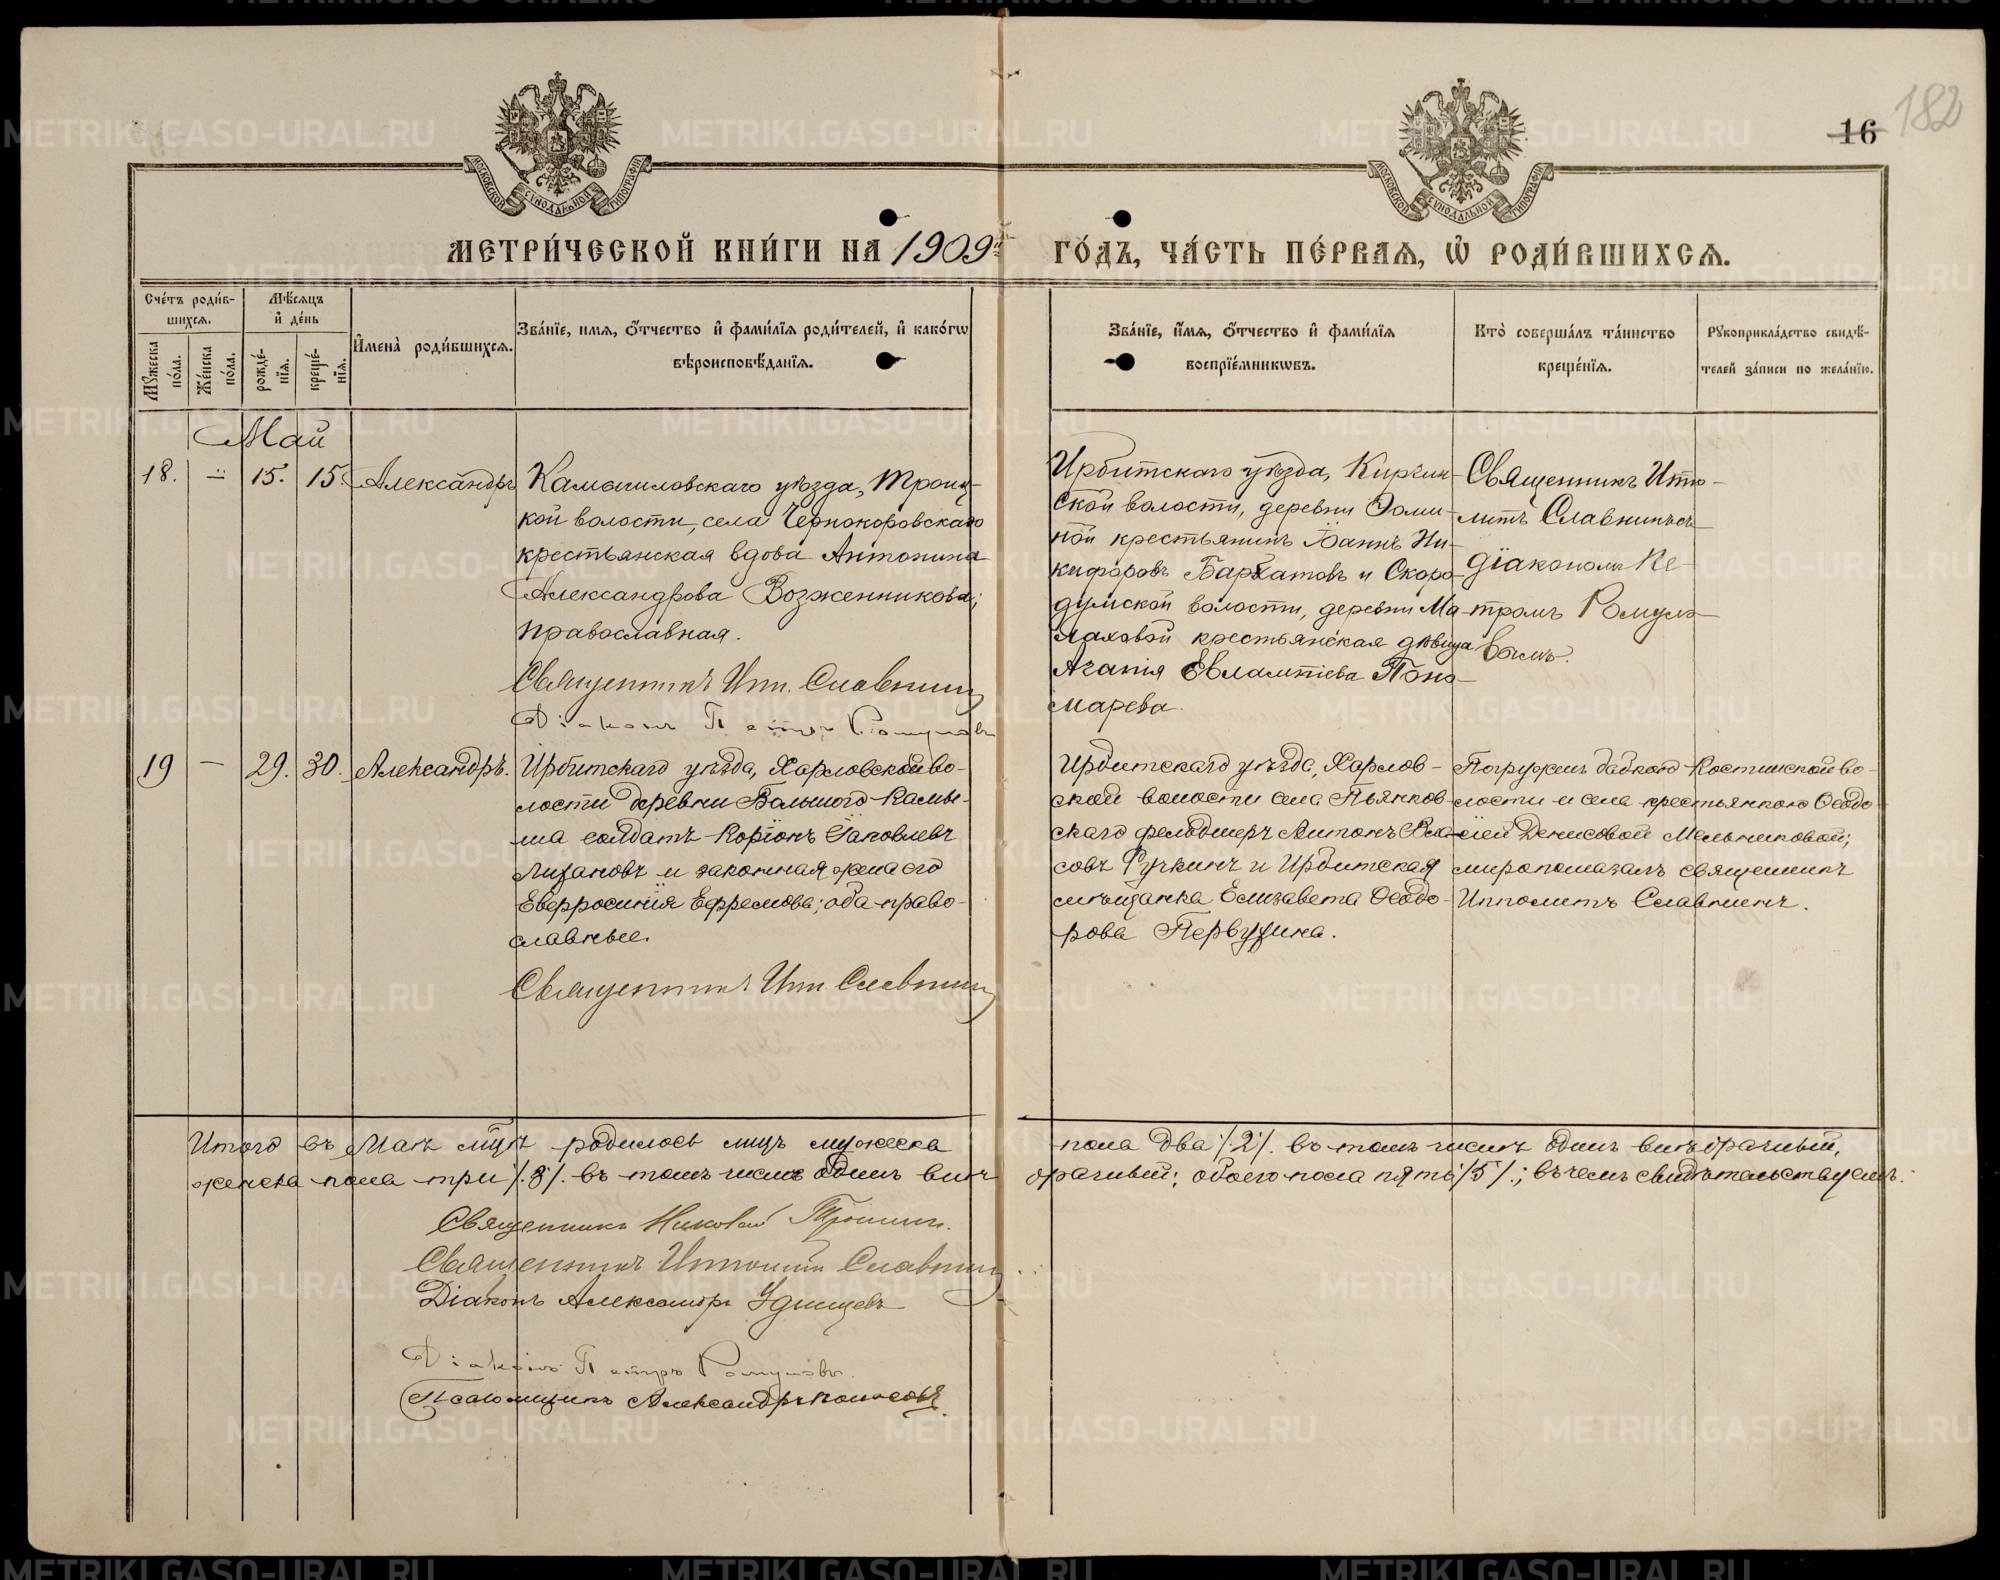 МОСКОВСКОЙ СѴНОДАЛЬНОЙ ТИПОГРАФІИ
МОСКОВСКОЙ СѴНОДАЛЬНОЙ ТИПОГРАФІИ
16
182
МЕТРИ́ЧЕСКОЙ КНИ́ГИ НА 1909й ГО́ДЪ, ЧА́СТЬ ПЕ́РВАѦ, Ѡ҆ РОДИ́ВШИХСѦ.
Сче́тъ роди́в-
шихсѧ.
Мѣ́сѧцъ
и҆ де́нь
Мꙋ́жеска по́ла.
Же́нска по́ла.
рожде́-
нїѧ.
креще́-
нїѧ.
И҆мена̀ роди́вшихсѧ.
Зва́нїе, имѧ, ѻ҆́тчество и҆ фами́лїѧ роди́телей, и҆ како́гѡ
вѣроисповѣ́данїѧ.
Зва́нїе, и҆́мѧ, ѻ҆́тчество и҆ фами́лїѧ
воспрїе́мникѡвъ.
Кто̀ соверша́лъ та́инство
креще́нїѧ.
Рꙋкоприкла́дство свидѣ́-
телей за́писи по жела́нїю.
Май
18. – 15. 15. Александръ
Камышловскаго уѣзда, Троиц-
кой волости, села Чернокоровскаго
крестьянская вдова Антонина
Александрова Возженникова;
православная.
Священникъ Ип. Славнинъ
Діаконъ Петръ Ромуловъ
Ирбитскаго уѣзда, Киргин-
ской волости, деревни Фоми-
ной крестьянинъ Іоаннъ Ни-
кифоровъ Бархатовъ и Скоро-
думской волости, деревни Ма-
лаховой крестьянская дѣвица
Агапія Евлампіева Поно-
марева.
Священникъ Иппо-
литъ Славнинъ съ
діакономъ Пе-
тромъ Ромуло-
вымъ.
19 – 29. 30. Александръ.
Ирбитскаго уѣзда, Харловской во-
лости деревни Большого Камы-
ша солдатъ Коріонъ Іаковлевъ
Лизановъ и законная жена его
Евфросинія Ефремова; оба право-
славные.
Священникъ Ип. Славнинъ
Ирбитскаго уѣзда, Харлов-
ской волости села Пьянков-
скаго фельдшеръ Антонъ Вла-
совъ Ручкинъ и Ирбитская
мѣщанка Елизавета Ѳеодо-
рова Первушина.
Погружен бабкою Костинской во-
лости и села крестьянкою Ѳеодо-
сіей Денисовой Мельниковой;
миропомазалъ священникъ
Ипполитъ Славнинъ.
Итого въ Маѣ мцѣ родилось лицъ мужеска пола два /.2/. въ томъ числѣ одинъ внѣбрачный,
женска пола три /.3/. въ томъ числѣ одинъ внѣбрачный; обоего пола пять /5/.; въ чемъ свидѣтельствуемъ:
Священникъ Николай Трошинъ.
Священникъ Ипполитъ Славнинъ
Діаконъ Александръ Удинцевъ
Діаконъ Петръ Ромуловъ.
Псаломщикъ Александръ Колосовъ.